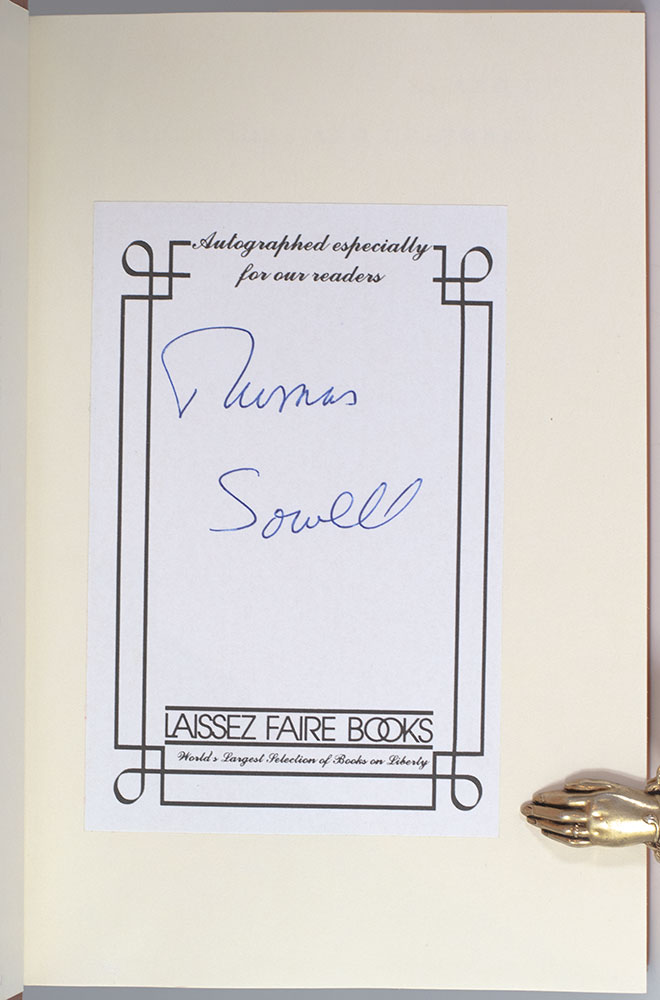 Autographed especially
for our readers
Thomas
Sowell
LAISSEZ FAIRE BOOKS
World's Largest Selection of Books on Liberty